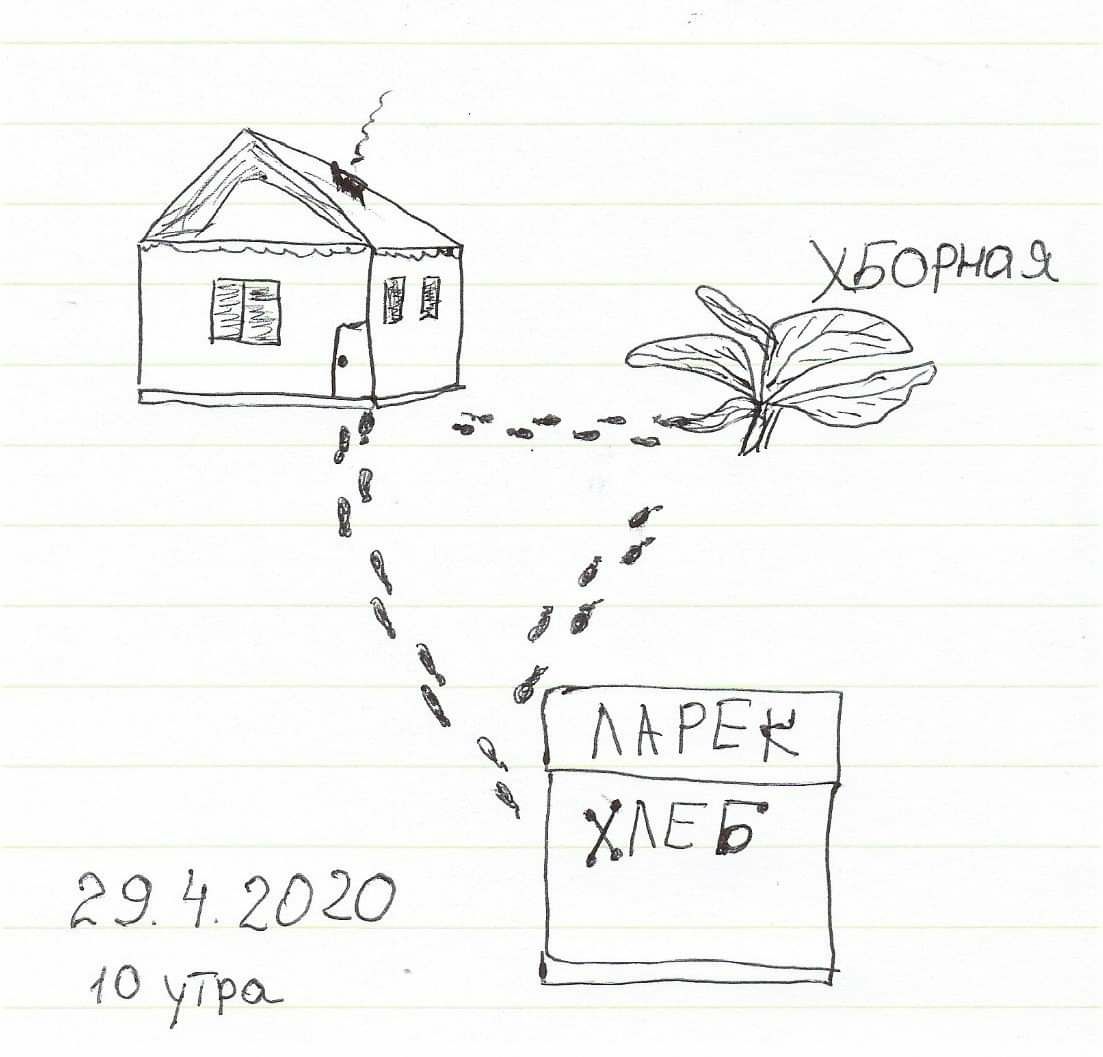 ХБОРНАЯ
ЛАРЕК
ХЛЕБ
29.4.2020
10 утра